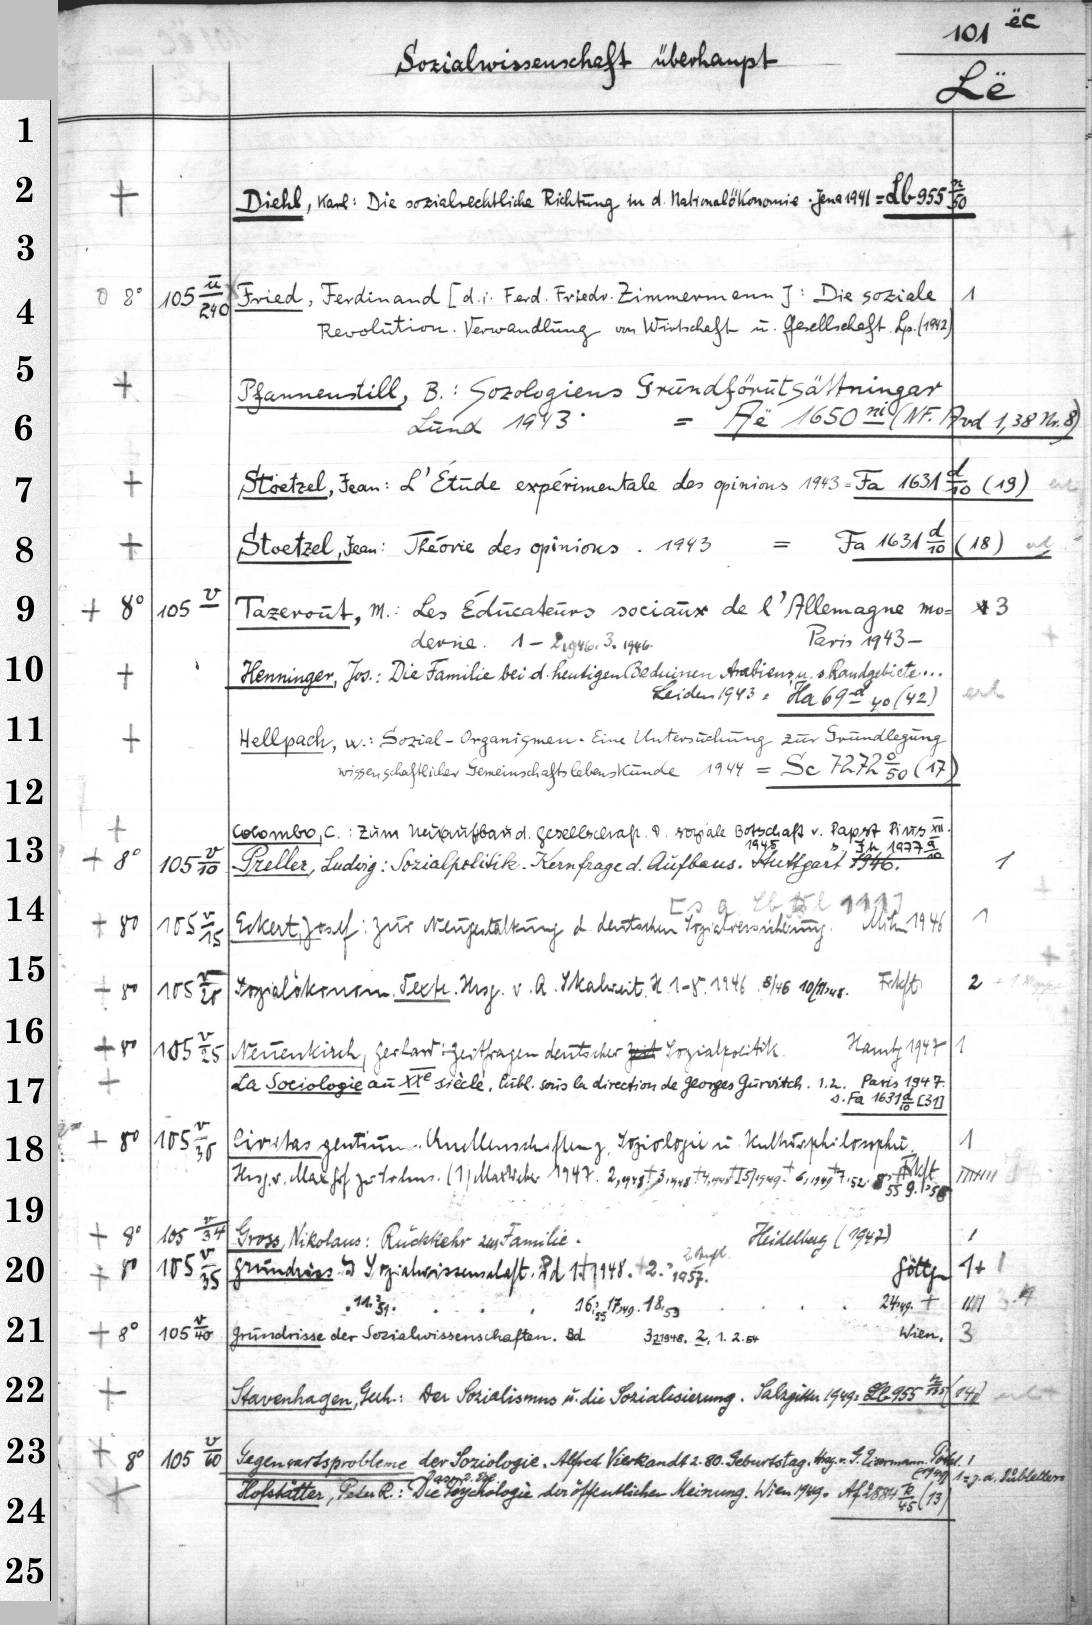 101 ëc
Sozialwissenschaft überhaupt
Lë
1
2
+ Diehl, Karl: Die sozialrechtliche Richtung in d. Nationalökonomie. Jena 1941 = Lb 955 n/50
3
4
8° 105 ü/240 Fried, Ferdinand [d.i. Ferd. Friedr. Zimmermann]: Die soziale 1
Revolution. Verwandlung von Wirtschaft u. Gesellschaft. Lp. (1942)
5
+ Pfannenstill, B.: Sozologiens Grundförutsättningar
6
Lund 1943. = Aë 1650 ni (NF. Avd 1, 38 Nr. 8)
7
+ Stoetzel, Jean: L'Étude expérimentale des opinions 1943 = Fa 1631 d/10 (19)
8
+ Stoetzel, Jean: Théorie des opinions. 1943 = Fa 1631 d/10 (18)
9
+ 8° 105 v Tazerout, M.: Les Éducateurs sociaux de l'Allemagne mo= 3
derne. 1-2, 1946. 3. 1946. Paris 1943-
10
+ Henninger, Jos.: Die Familie bei d. heutigen Beduinen Arabiens u. s. Randgebiete...
Leiden 1943 = Ha 69 d 40 (42)
11
+ Hellpach, W.: Sozial-Organismen. Eine Untersuchung zur Grundlegung
wissenschaftlicher Gemeinschaftslebenskunde 1944 = Sc 7272 o/50 (17)
12
+ Colombo, C.: Zum Neuaufbau d. Gesellschaft. D. soziale Botschaft v. Papst Pius XII.
1945 s. Fh 1977 g/10
13
+ 8° 105 v/10 Preller, Ludwig: Sozialpolitik. Kernfrage d. Aufbaus. Stuttgart 1946. 1
14
+ 8° 105 v/15 Eckert, Josef: Zur Neugestaltung d. deutschen Sozialversicherung. Mchn 1946 1
15
+ 8° 105 v/20 Sozialökonom. Texte. Hrsg. v. A. Skalweit. H. 1-5. 1946 Frkft. 2
16
+ 8° 105 v/25 Neuenkirch, Gerhard: Zeitfragen deutscher Sozialpolitik. Hambg 1947 1
17
+ La Sociologie au XXe siècle, Publ. sous la direction de Georges Gurvitch. 1.2. Paris 1947.
s. Fa 1631 d/10 [31]
18
+ 8° 105 v/30 Civitas gentium. Quellenschriften z. Soziologie u. Kulturphilosophie. 1
Hrsg. v. Max Graf zu Solms. (1) Max Weber 1947. Frkft
19
+ 8° 105 v/34 Gross, Nikolaus: Rückkehr zur Familie. Heidelberg (1947) 1
20
+ 8° 105 v/35 Grundriss d. Sozialwissenschaft. Bd 1 1948. 2. 1957. Göttgn 1+1
21
+ 8° 105 v/40 Grundrisse der Sozialwissenschaften. Bd 3, 1948. 2, 1. 2. 54 Wien. 3
22
+ Stavenhagen, Gerh.: Der Sozialismus u. die Sozialisierung. Salzgitter 1949 = Lb 955 (14)
23
+ 8° 105 v/60 Gegenwartsprobleme der Soziologie. Alfred Vierkandt z. 80. Geburtstag. Hrsg. v. G. Eisermann. Potsd. 1
1949 1 z. d. Dubletten
24
+ Hofstätter, Peter R.: Die Psychologie der öffentlichen Meinung. Wien 1949 = Af 2884 b/45 (13)
25